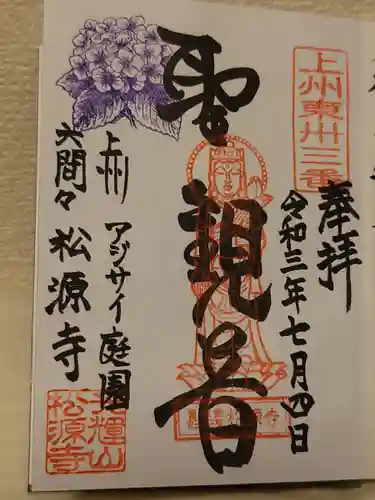 上州東卅三番
奉拝
令和三年七月四日
聖観音
上州
アジサイ庭園
大間々
松源寺
松源寺